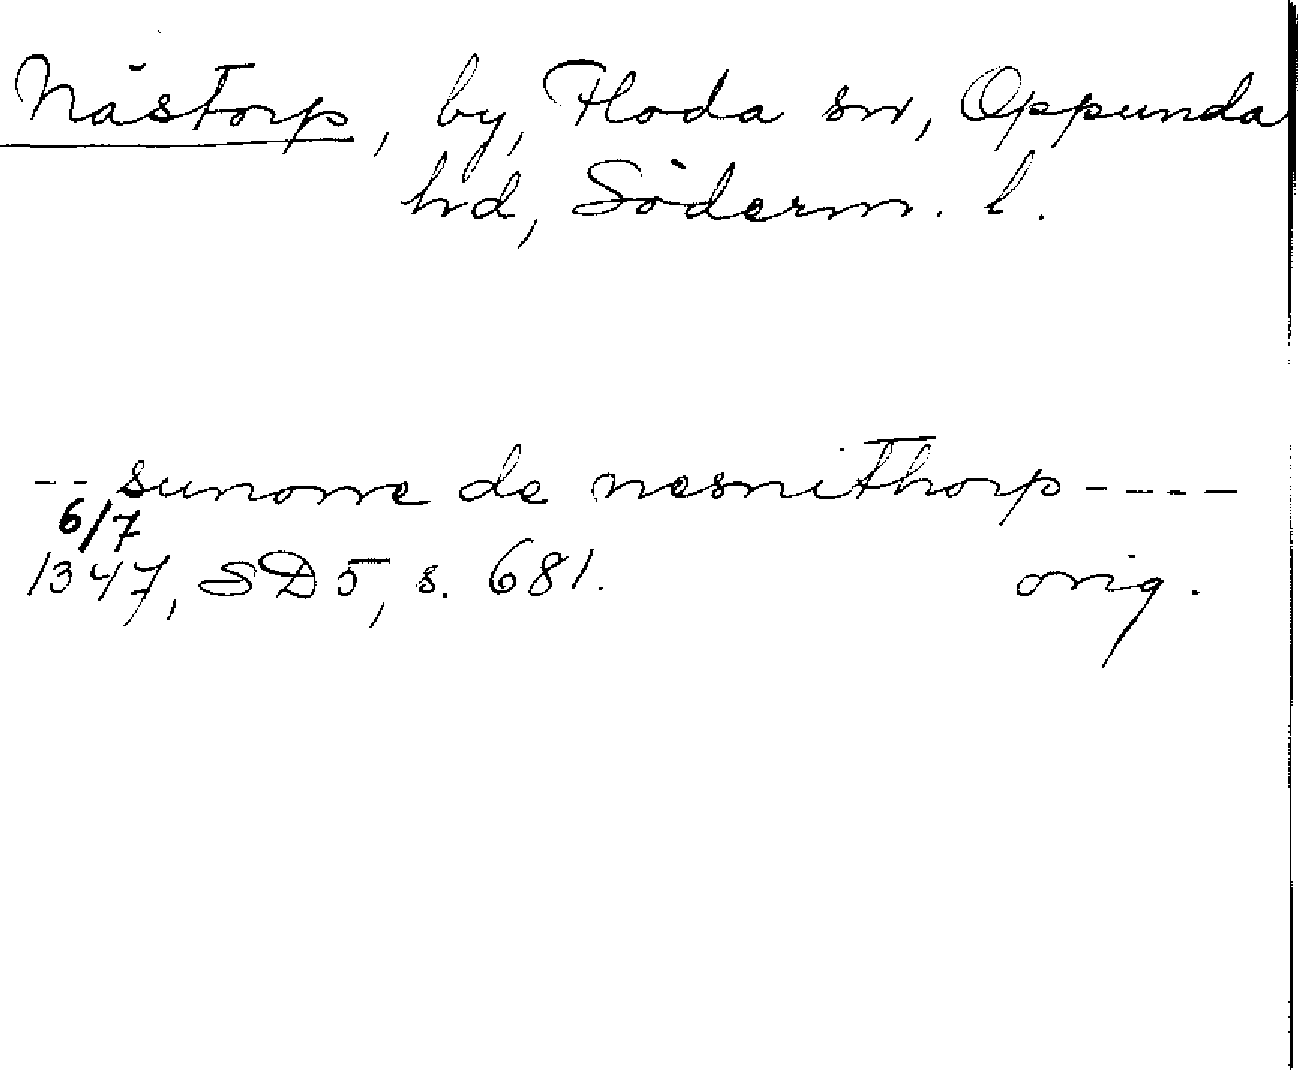 Nästorp, by, Floda sn, Oppunda
hd, Söderm. l.
-- sunorre de nesnithorp ----
6/7
1347, SD 5, s. 681. orig.